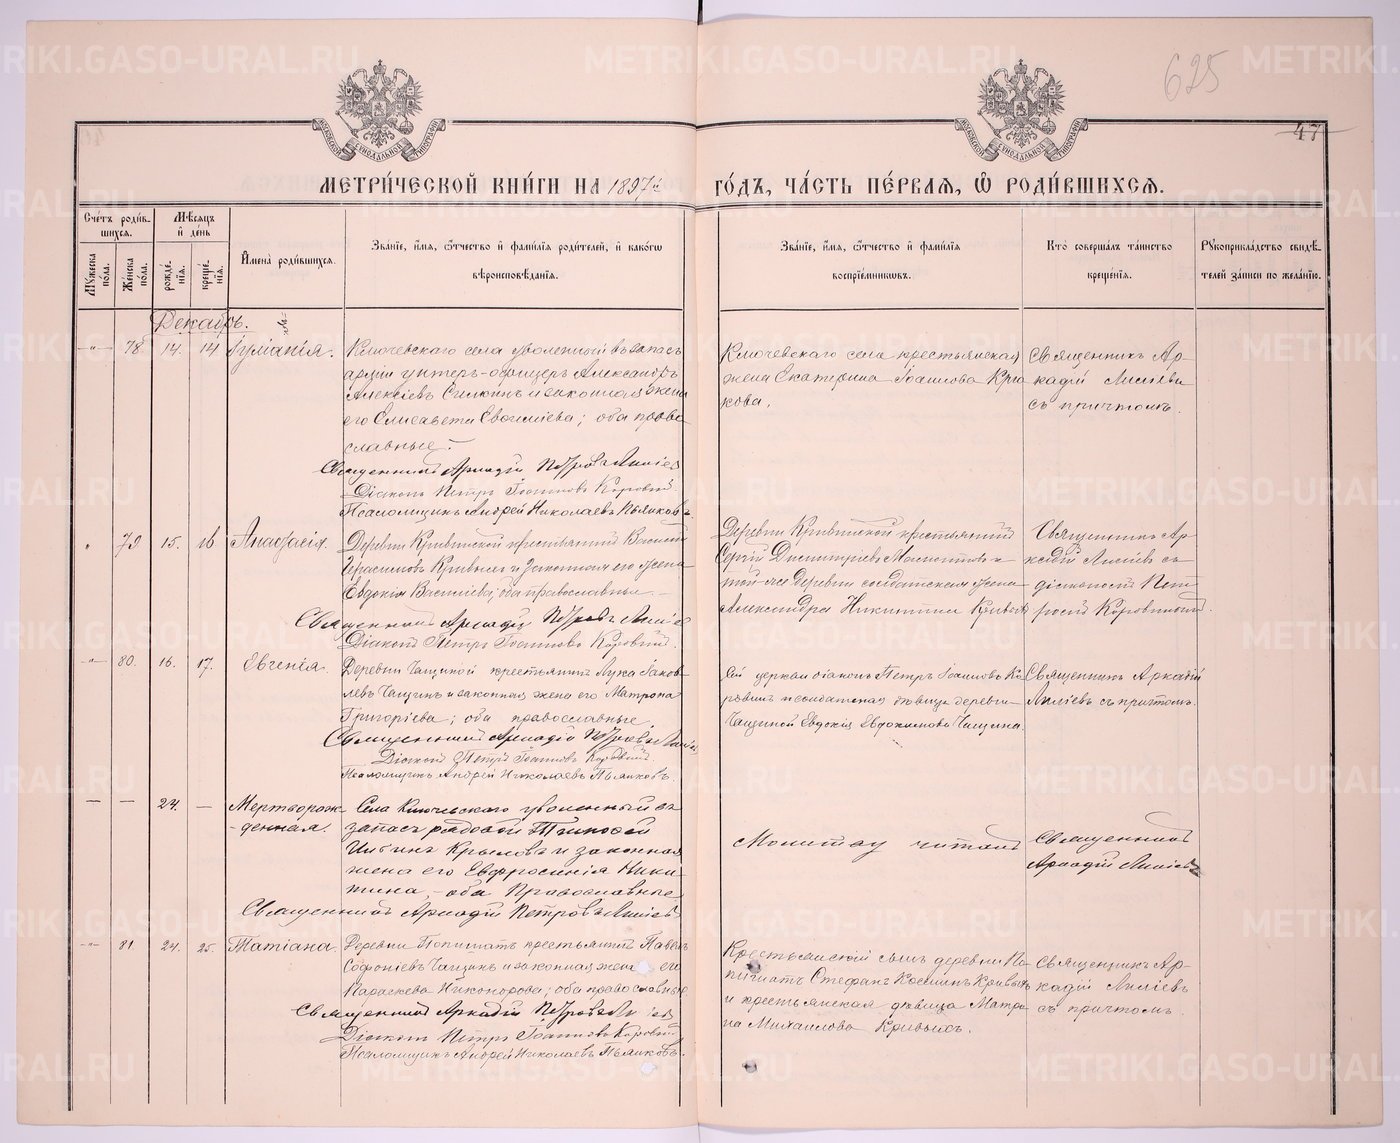 625
47
МОСКОВСКОЙ СѴНОДАЛЬНОЙ ТИПОГРАФІИ
МОСКОВСКОЙ СѴНОДАЛЬНОЙ ТИПОГРАФІИ
МЕТРИ́ЧЕСКОЙ КНИ́ГИ НА 1897й
ГО́ДЪ, ЧА́СТЬ ПЕ́РВАЯ, Ѿ РОДИ́ВШИХСЯ.
Сче́тъ роди́в-
шихся.
Мꙋ́жеска по́ла.
Же́нска по́ла.
Мѣ́сяцъ
и҆ де́нь
рожде́-
нїя.
креще́-
нїя.
И҆мена̀ роди́вшихся.
Зва́нїе, и҆́мя, ѻ҆́тчество и҆ фами́лїя роди́телей, и҆ како́гѡ
вѣроисповѣ́данїя.
Зва́нїе, и҆́мя, ѻ҆́тчество и҆ фами́лїя
воспрїе́мниковъ.
Кто̀ соверша́лъ та́инство
креще́нїя.
Рꙋкоприкла́дство свидѣ́-
телей за́писи по жела́нїю.
Декабрь.
-"- 78. 14. 14 Іуліанія.
Ключевскаго села уволенный въ запасъ
арміи унтеръ-офицеръ Александръ
Алексіевъ Силкинъ и законная жена
его Елисавета Евсиміева; оба право
славные.
Священникъ Аркадій Петровъ Лиліев
Діаконъ Петръ Іоанновъ Коровинъ.
Псаломщикъ Андрей Николаевъ Пьянковъ
Ключевскаго села крестьянская
жена Екатерина Іоаннова Крю
кова.
Священникъ Ар-
кадій Лиліевъ
съ причтомъ.
" 79 15. 16 Анастасія.
Деревни Кривинской крестьянинъ Василій
Герасимовъ Кривыхъ и законная его жена
Евдокія Васильева; оба православные.
Священникъ Аркадій Петровъ Лиліев
Діаконъ Петръ Іоанновъ Коровинъ.
Деревни Кривинской крестьянинъ
Сергій Димитріевъ и
той-же деревни солдатская жена
Александра Никитина Кривыхъ
Священникъ Ар-
кадій Лиліевъ съ
діакономъ Пет-
ромъ Коровинымъ.
-"- 80. 16. 17. Евгенія.
Деревни Чащиной крестьянинъ Лука Іаков-
левъ Чащинъ и законная жена его Матрона
Григоріева; оба православные.
Священникъ Аркадій Петровъ Лиліев
Діаконъ Петръ Іоанновъ Коровинъ
Псаломщикъ Андрей Николаевъ Пьянковъ.
Сей церкви діаконъ Петръ Іоанновъ Ко
ровинъ и солдатская дѣвица деревни
Чащиной Евдокія Евдокимова Чащина.
Священникъ Аркадій
Лиліевъ съ причтомъ.
— — 24. — Мертворож-
-денная.
Села Ключевскаго уволенный въ
запасъ рядовой Тимофей
Ильинъ Крыловъ и законная
жена его Евфросинія Ники-
тина, – оба Православные
Священникъ Аркадій Петровъ Лиліев
Молитву читалъ
Священникъ
Аркадій Лиліевъ
-"- 81 24. 25. Татіана.
Деревни Попигатъ крестьянинъ Павелъ
Софоніевъ Чащинъ и законная жена его
Параскева Никонорова; оба православные
Священникъ Аркадій Петровъ Лиліев
Діаконъ Петръ Іоанновъ Коровинъ
Псаломщикъ Андрей Николаевъ Пьянковъ.
Крестьянскій сынъ деревни По
пигатъ Стефанъ Косминъ Кривыхъ
и крестьянская дѣвица Матро
на Михаилова Кривыхъ.
Священникъ Ар-
кадій Лиліевъ
съ причтомъ.
METRIKI.GASO-URAL.RU